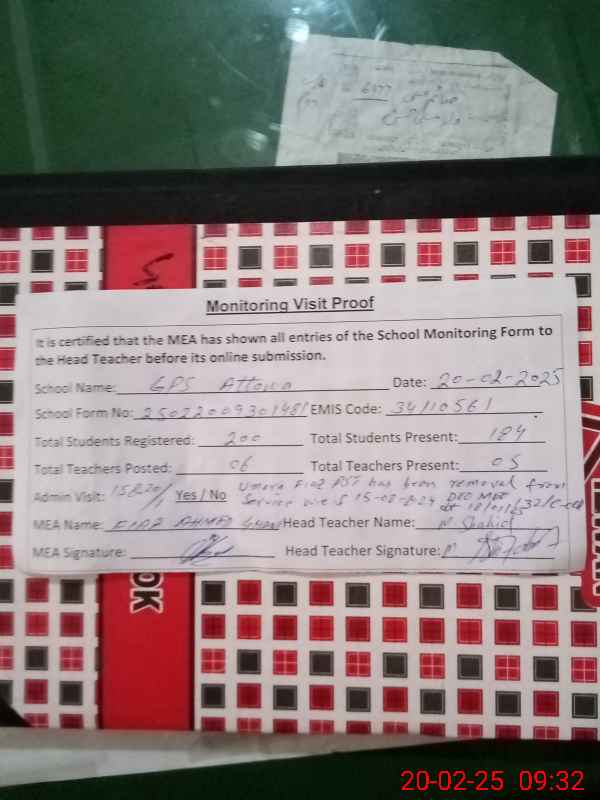 6177
Monitoring Visit Proof
It is certified that the MEA has shown all entries of the School Monitoring Form to
the Head Teacher before its online submission.
School Name: GPS Attowa Date: 20-02-2025
School Form No: EMIS Code: 34110561
Total Students Registered: 200 Total Students Present: 184
Total Teachers Posted: 06 Total Teachers Present: 05
Umara Fiaz PST has been removal from
Admin Visit: Yes / No Service w.e.f 15-08-2024
MEA Name: FIAZ AHMED KHAN Head Teacher Name: M Shahid
MEA Signature: Head Teacher Signature:
OK
20-02-25 09:32